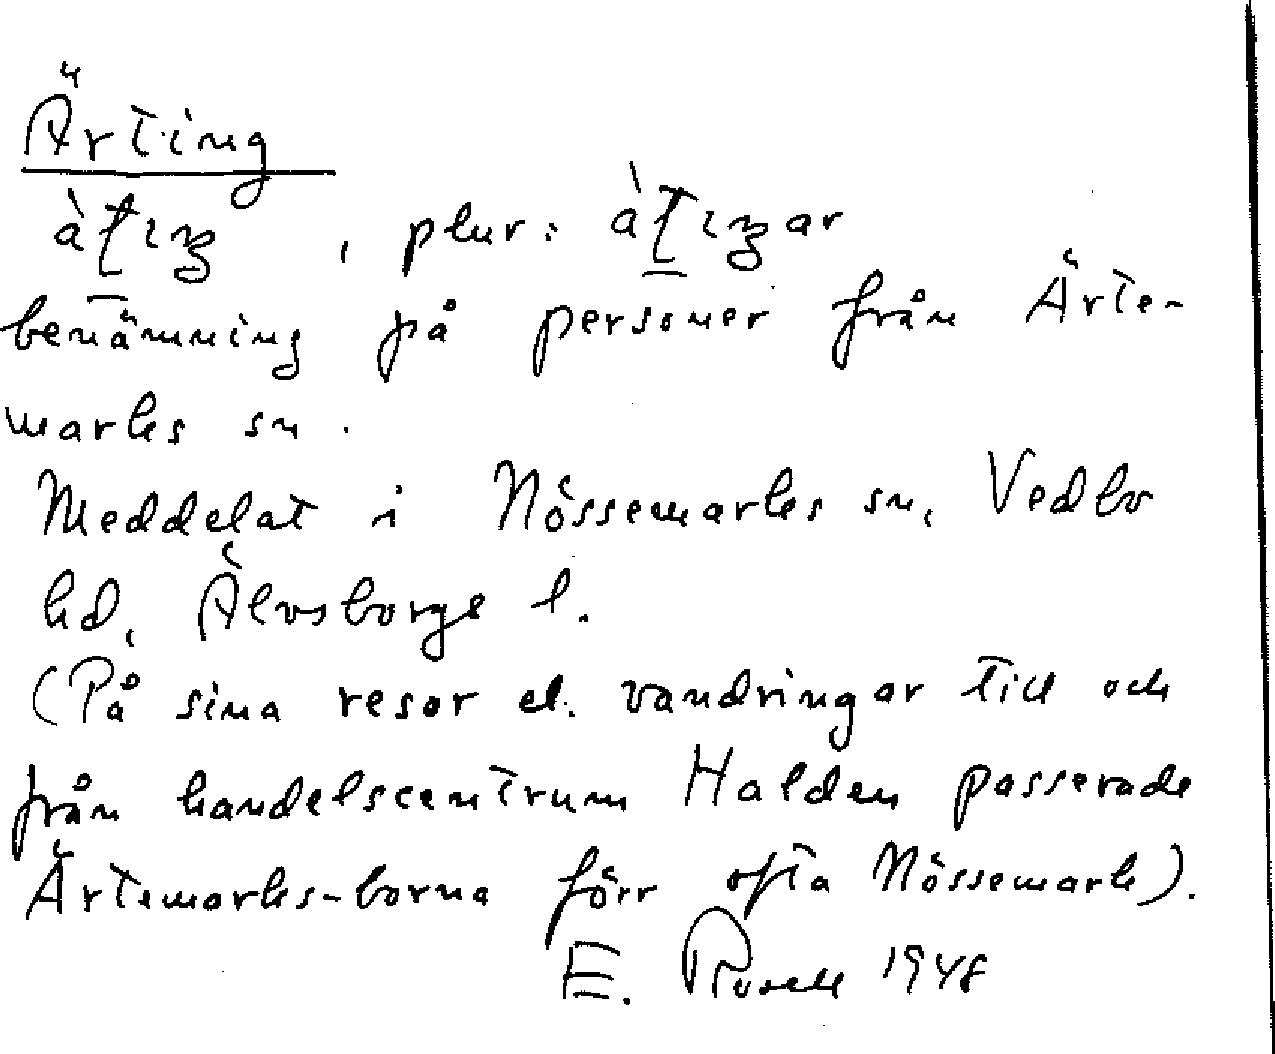 Ärting
àt̠ıŋ, plur: àt̠ıŋar
benämning på personer från Ärte-
marks sn.
Meddelat i Nössemarks sn, Vedbo
hd, Älvsborgs l.
(På sina resor el. vandringar till och
från handelscentrum Halden passerade
Ärtemarks-borna förr ofta Nössemark).
E. Rosell 1948